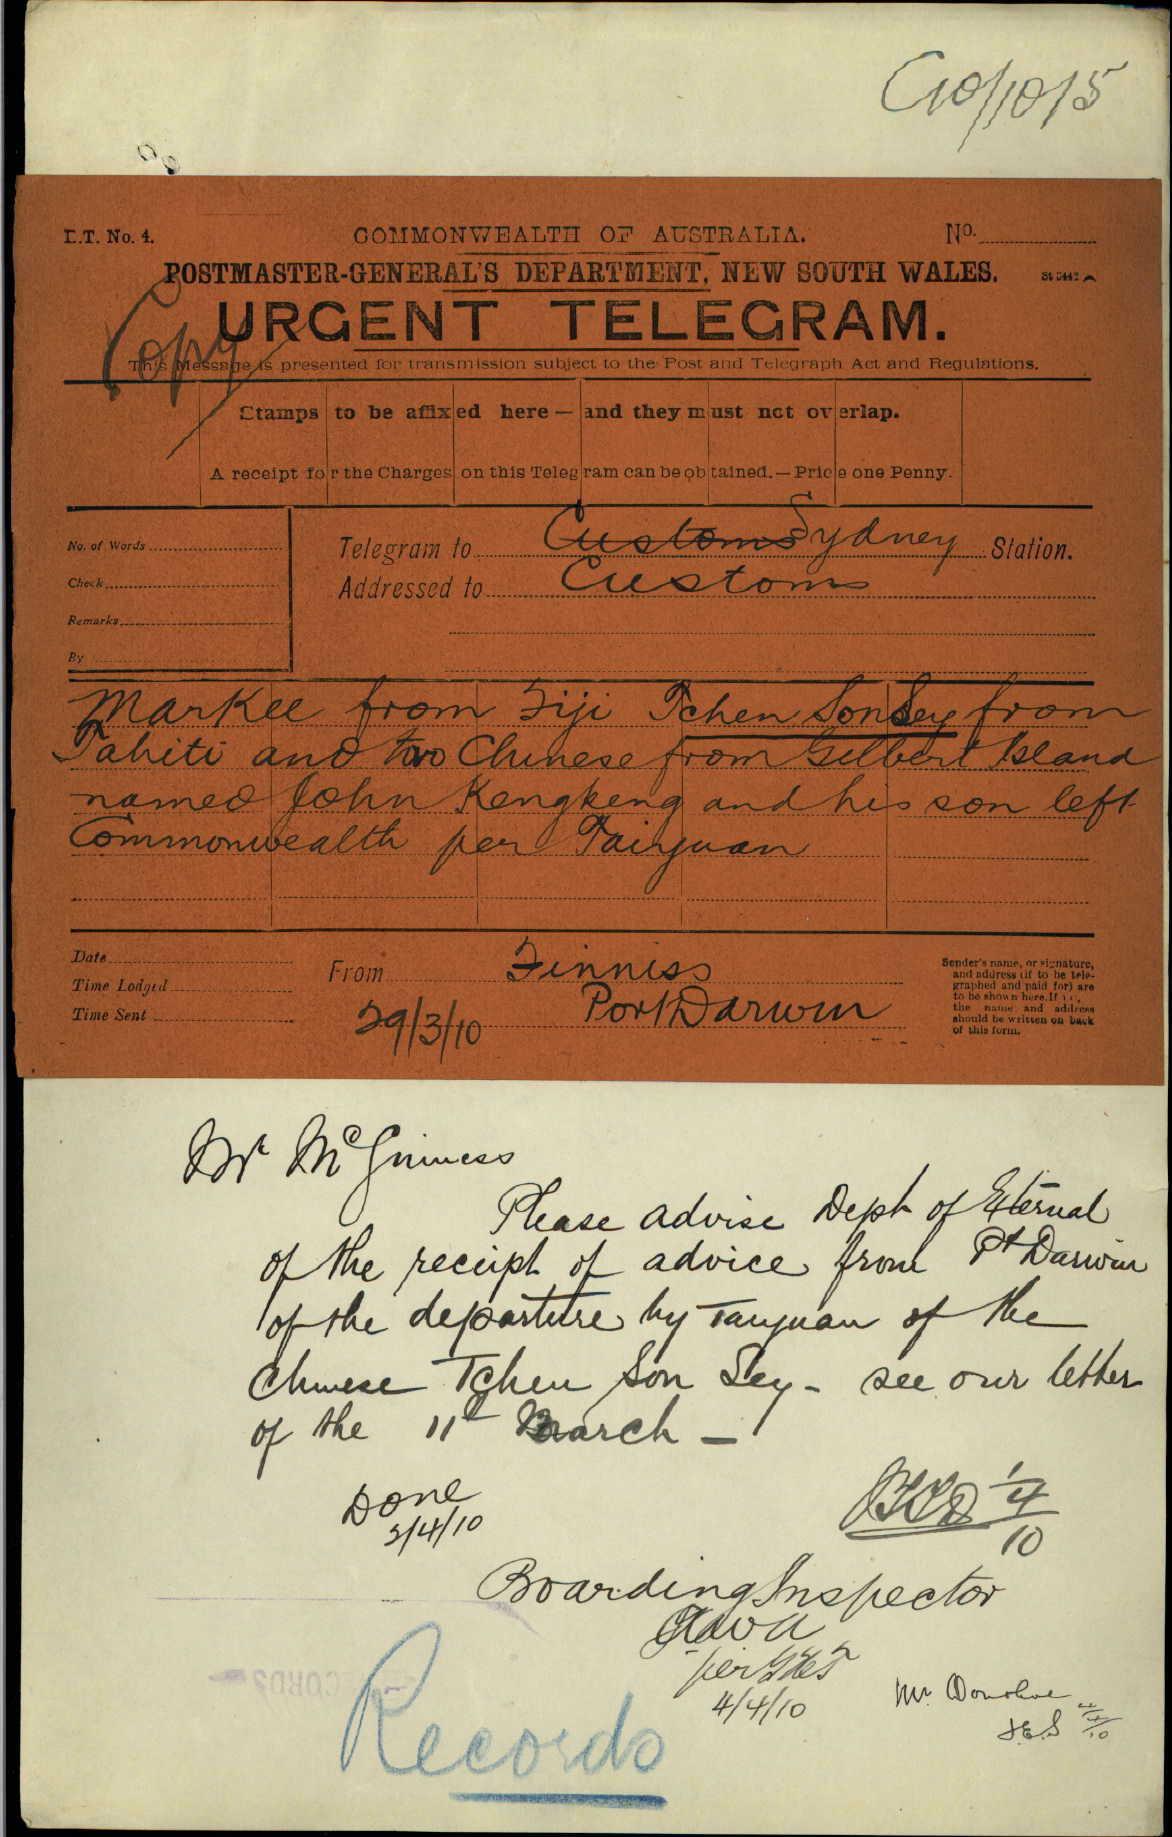 C10/1015
E.T. No. 4.
COMMONWEALTH OF AUSTRALIA.
No.
POSTMASTER-GENERAL'S DEPARTMENT, NEW SOUTH WALES.
URGENT TELEGRAM.
Copy
This Message is presented for transmission subject to the Post and Telegraph Act and Regulations.
Stamps to be affixed here — and they must not overlap.
A receipt for the Charges on this Telegram can be obtained. — Price one Penny.
No. of Words
Check
Remarks
By
Telegram to Customs Sydney Station.
Addressed to Customs
Markee from Fiji Tchen Son Sey from
Tahiti and two Chinese from Gilbert Island
named John Kengkeng and his son left
Commonwealth per Taiyuan
Date
Time Lodged
Time Sent
From Finniss
Port Darwin
29/3/10
Sender's name, or signature,
and address (if to be tele-
graphed and paid for) are
to be shown here. If
the name and address
should be written on back
of this form.
Mr McGinness
Please advise Dept of External
of the receipt of advice from Pt Darwin
of the departure by Taiyuan of the
Chinese Tchen Son Sey - see our letter
of the 11th March —
Done
2/4/10
1/4/10
Boarding Inspector
4/4/10
Mr Donohoe
J.E.S 4/4/10
RECORDS
Records